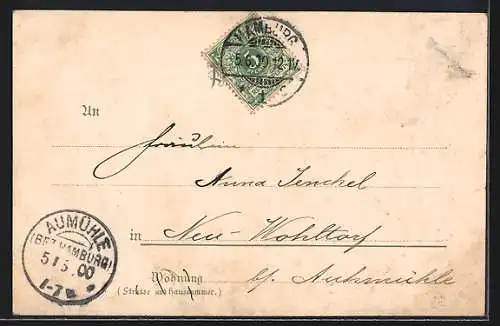 HAMBURG
5.6.  12-1V.
1
An
Fräulein
Anna Jenckel
in Neu-Wohltorf
Wohnung b/ Aukmühle
(Strasse und Hausnummer.)
AUMÜHLE
(BEZ. HAMBURG)
5/6.00
1-7